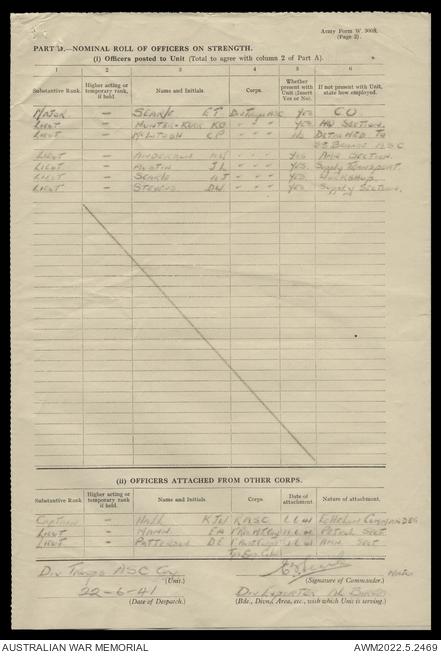 Army Form W 3008.
(Page 2)
PART D.—NOMINAL ROLL OF OFFICERS ON STRENGTH.
(i) Officers posted to Unit (Total to agree with column 2 of Part A).
1 2 3 4 5 6
Substantive Rank. Higher acting or temporary rank, if held. Name and Initials. Corps. Whether present with Unit (Insert Yes or No). If not present with Unit, state how employed.
MAJOR — SEARLE ET Div Troops ASC YES CO
LIEUT — HUNTER-KERR KO " " " YES HQ SECTION.
LIEUT — McINTOSH CP " " " No DETACHED TO
ASC
LIEUT — ANDERSON " " " YES AMN SECTION.
LIEUT — AUSTIN JL " " " YES. Supply Transport.
LIEUT — SEARLE " " " YES. WORKSHOP.
LIEUT — STEVENS DW " " " YES. Supply Section.
(ii) OFFICERS ATTACHED FROM OTHER CORPS.
Substantive Rank Higher acting or temporary rank, if held. Name and Initials. Corps. Date of attachment. Nature of attachment.
CAPTAIN — HALL KJW RASC Echelon COMMANDER
LIEUT — MANN. EA Petrol Sect
LIEUT — PATTERSON DE AMN Sect
Div Troops ASC Coy
(Unit.)
(Signature of Commander.)
22-6-41
(Date of Despatch.)
(Bde., Divnl. Area, etc., with which Unit is serving.)
AUSTRALIAN WAR MEMORIAL
AWM2022.5.2469